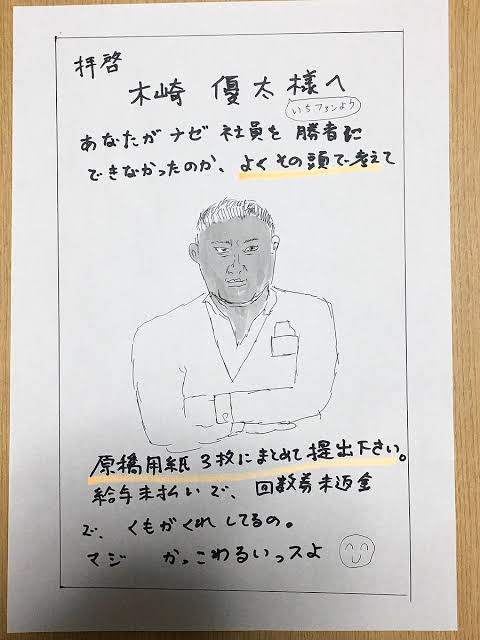 拝啓
木崎 優太様へ
いちファンより
あなたがナゼ 社員を 勝者に
できなかったのか、よくその頭で考えて
原稿用紙 3枚にまとめて提出下さい。
給与未払いで、回数券未返金
で、くもがくれしてるの。
マジ かっこわるいっスよ